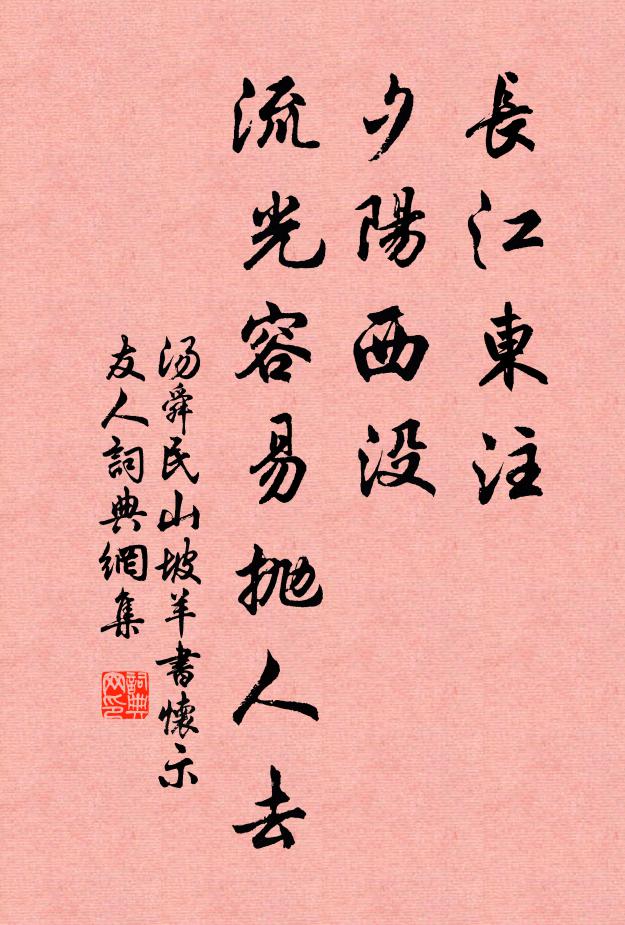 長江東注
夕陽西没
流光容易抛人去
汤舜民山坡羊書懷示
友人詞典網集
詞典网印